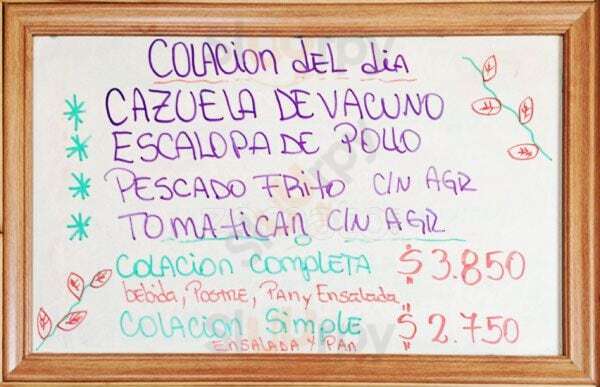 COLACION DEL DIA
* CAZUELA DE VACUNO
* ESCALOPA DE POLLO
* PESCADO FRITO C/N AGR
* TOMATICAN C/N AGR
COLACION COMPLETA $3.850
bebida, Postre, Pan y Ensalada
COLACION SIMPLE $2.750
ENSALADA Y PAN